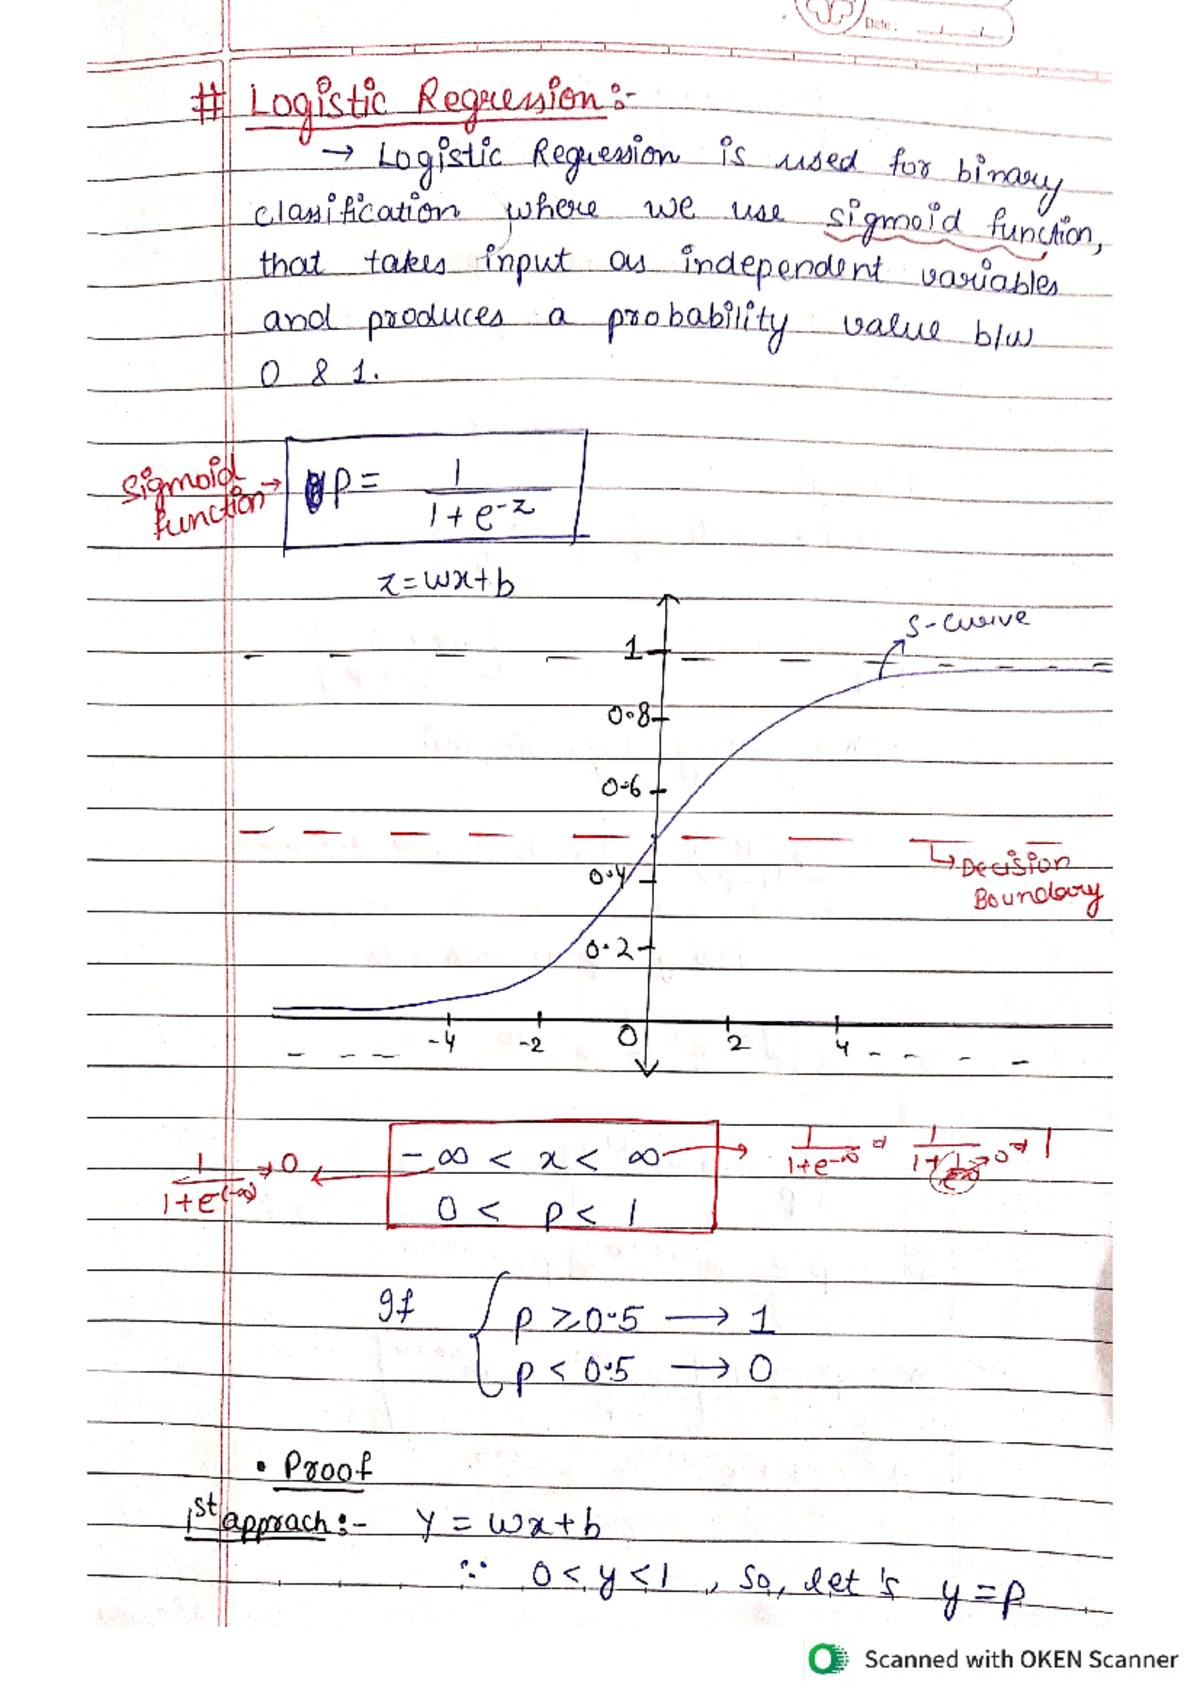 Date:
# Logistic Regression :-
→ Logistic Regression is used for binary
classification where we use sigmoid function,
that takes input as independent variables
and produces a probability value b/w
0 & 1.
Sigmoid function →
p = 1 / (1 + e^-z)
z = wx + b
S-curve
1
0.8
0.6
Decision Boundary
0.4
0.2
-4 -2 0 2 4
-∞ < x < ∞
1 / (1 + e^-(-∞)) → 0
1 / (1 + e^-∞) ⇒
0 < p < 1
If { p ≥ 0.5 → 1
p < 0.5 → 0
• Proof
1st apprach :- y = wx + b
∵ 0 < y < 1, So, let's y = p
Scanned with OKEN Scanner